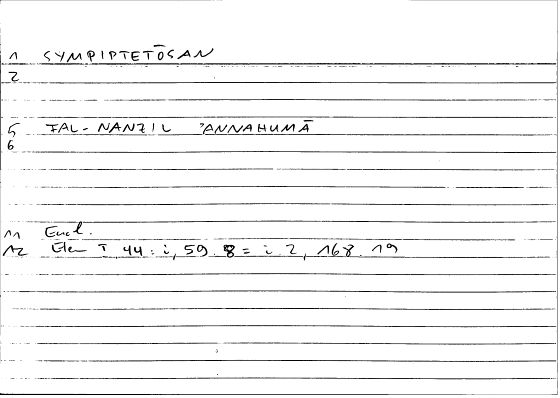 1 SYMPIPTETŌSAN
2
5 FAL-NANZIL ʾANNAHUMĀ
6
11 Eucl.
12 Elem I 44 : i, 59. 8 = i 2, 168. 19